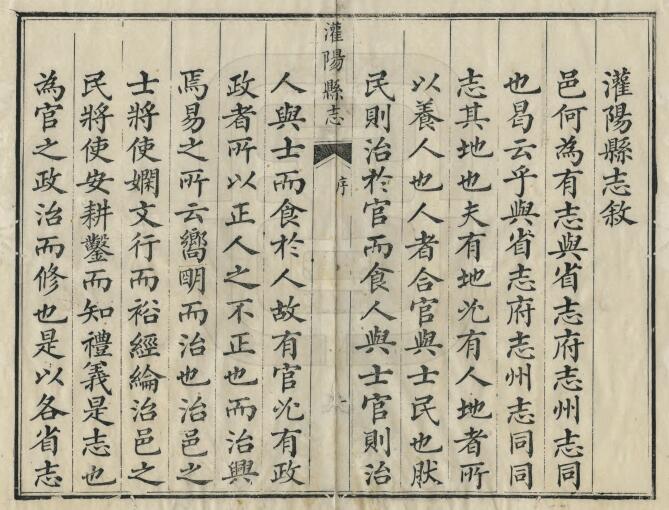 灌陽縣志敘
邑何為有志與省志府志州志同
也曷云乎與省志府志州志同同
志其地也夫有地必有人地者所
以養人也人者合官與士民也肰
民則治於官而食人與士官則治
灌陽縣志
序
人與士而食於人故有官必有政
政者所以正人之不正也而治興
焉易之所云嚮明而治也治邑之
士將使嫻文行而裕經綸治邑之
民將使安耕鑿而知禮義是志也
為官之政治而修也是以各省志